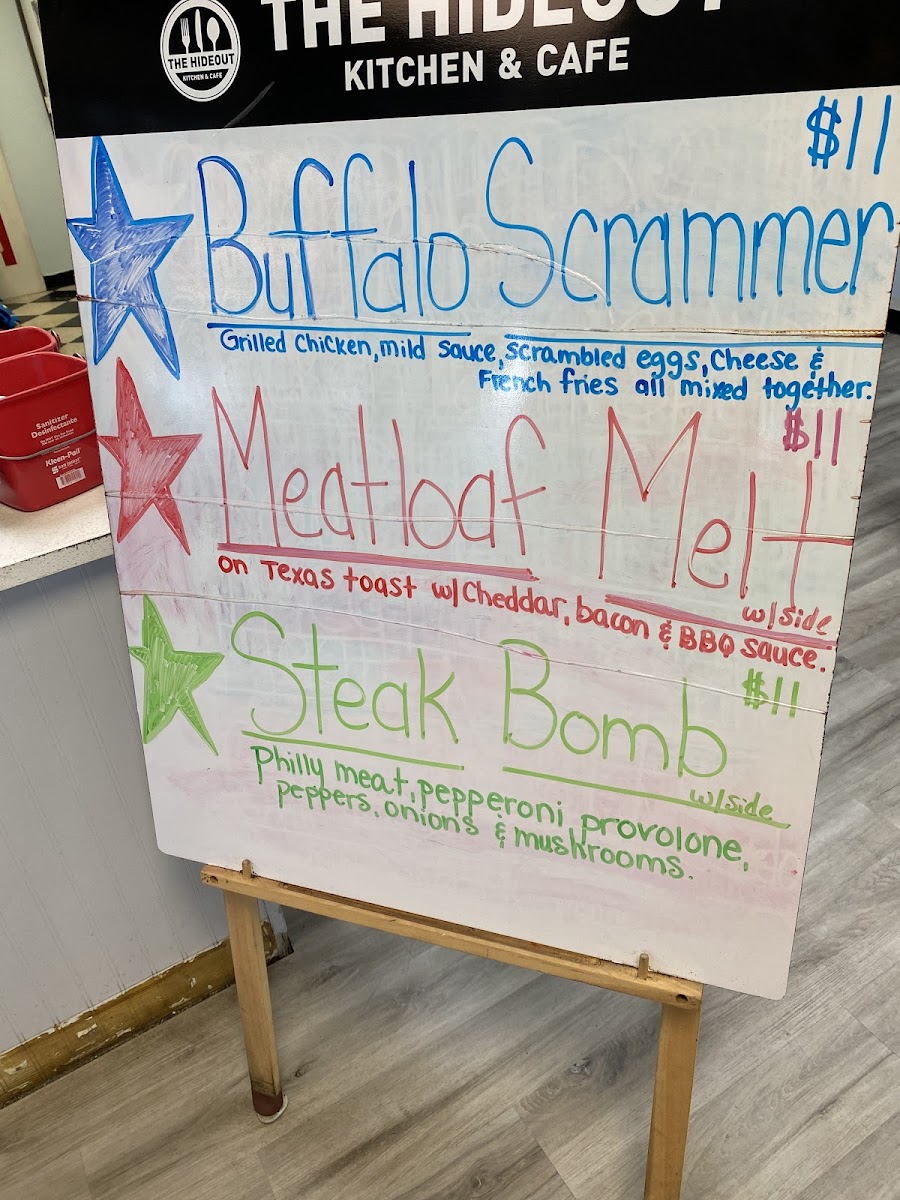 THE HIDEOUT
KITCHEN & CAFE
THE HIDEOUT
KITCHEN & CAFE
$11
Buffalo Scrammer
Grilled Chicken, mild sauce, scrambled eggs, Cheese &
French fries all mixed together.
$11
Meatloaf Melt
w/side
on Texas toast w/Cheddar, bacon & BBQ sauce.
$11
Steak Bomb
w/side
Philly meat, pepperoni provolone,
peppers, onions & mushrooms.
Sanitizer
Desinfectante
Kleen-Pail